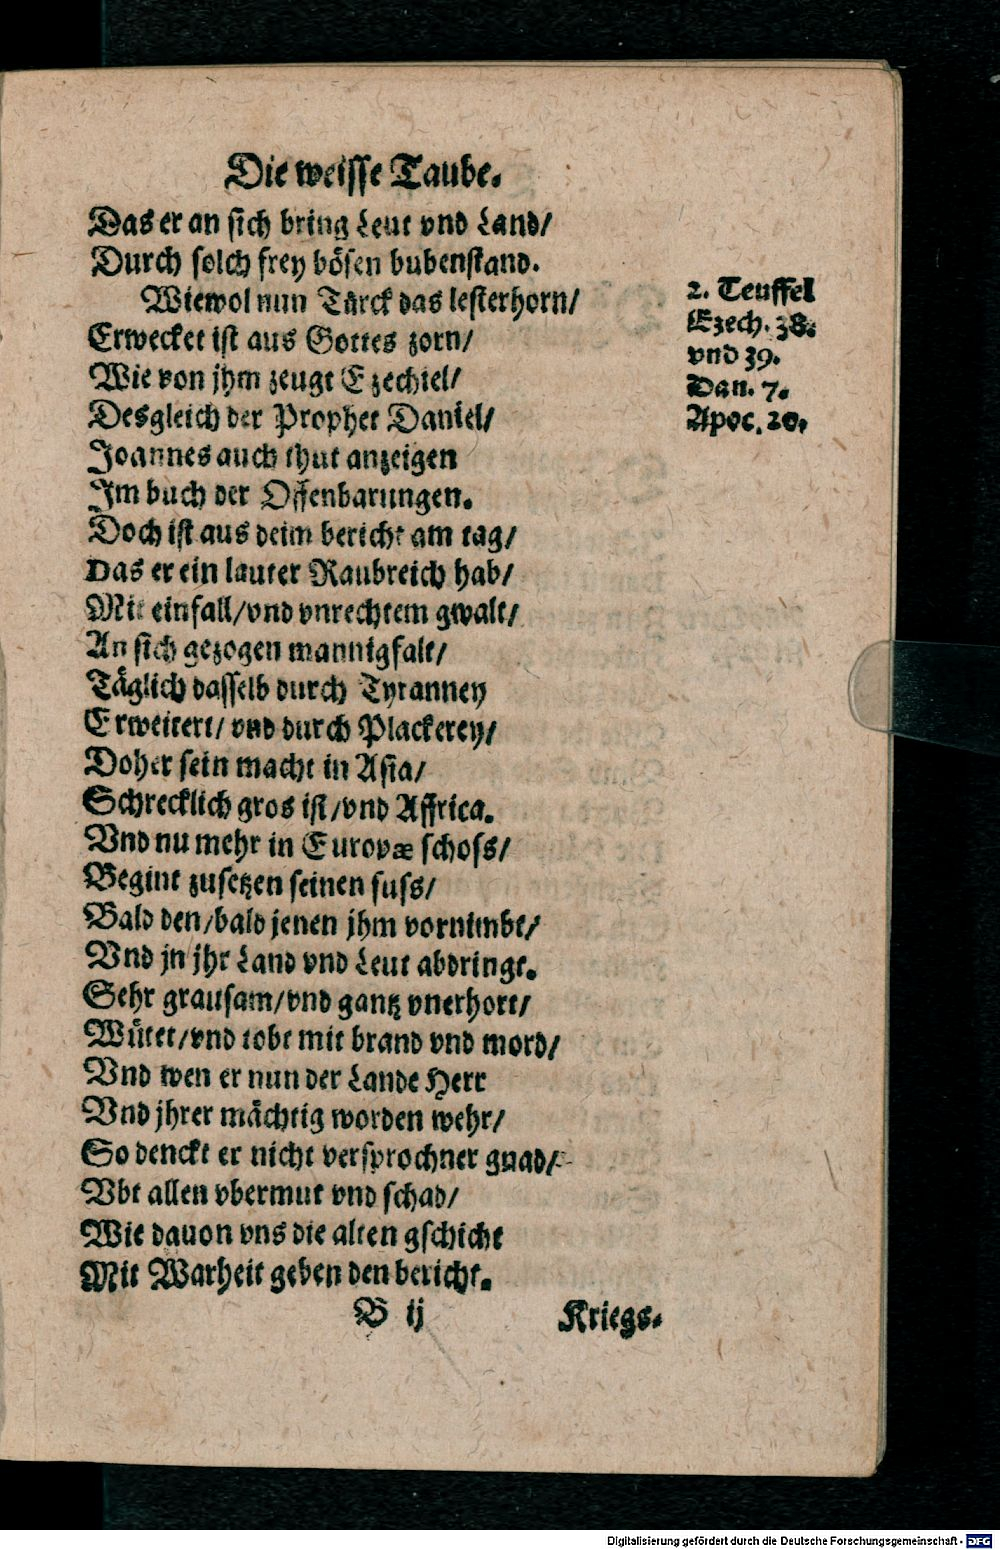 Die weisse Taube.
Das er an sich bring Leut vnd Land/
Durch solch frey bösen bubenstand.
Wiewol nun Türck das lesterhorn/
Erwecket ist aus Gottes zorn/
Wie von jhm zeugt Ezechiel/
Desgleich der Prophet Daniel/
Joannes auch thut anzeigen
Im buch der Offenbarungen.
Doch ist aus deim bericht am tag/
Das er ein lauter Raubreich hab/
Mit einfall/vnd vnrechtem gwalt/
An sich gezogen mannigfalt/
Täglich dasselb durch Tyranney
Erweitert/ vnd durch Plackerey/
Doher sein macht in Asia/
Schrecklich gros ist/vnd Affrica.
Vnd nu mehr in Europæ schoss/
Begint zusetzen seinen fuss/
Bald den/bald jenen jhm vornimbt/
Vnd jn jhr Land vnd Leut abdringt.
Sehr grausam/vnd gantz vnerhort/
Wütet/vnd tobt mit brand vnd mord/
Vnd wen er nun der Lande Herr
Vnd jhrer mächtig worden wehr/
So denckt er nicht versprochner gnad/
Vbt allen vbermut vnd schad/
Wie dauon vns die alten gschicht
Mit Warheit geben den bericht.
B ij
Kriegs-
2. Teuffel
Ezech. 38.
vnd 39.
Dan. 7.
Apoc. 20.
Digitalisierung gefördert durch die Deutsche Forschungsgemeinschaft - DFG